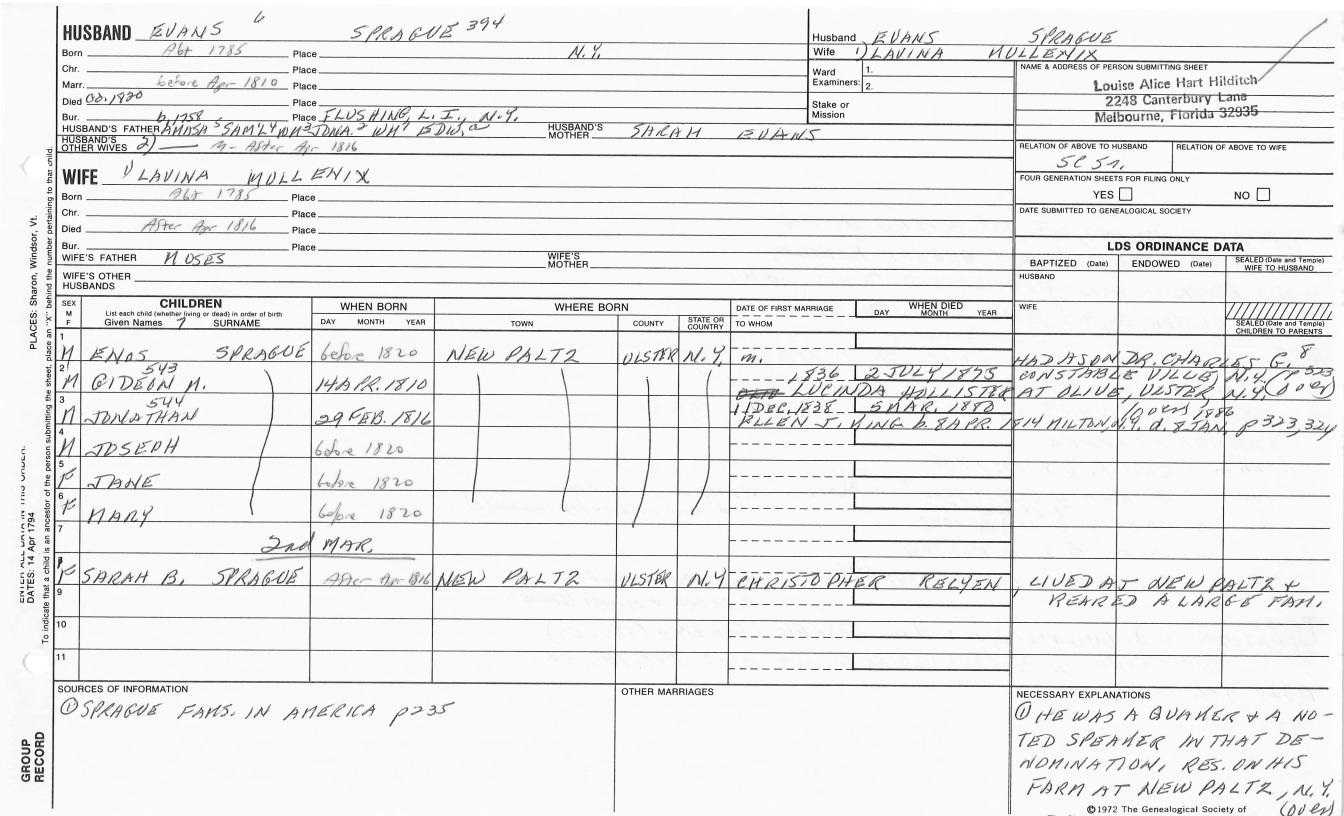 HUSBAND EVANS 6 SPRAGUE 394
Born Abt 1785 Place N.Y.
Chr. Place
Marr. before Apr 1810 Place
Died Oct. 1820 Place
Bur. Place FLUSHING, L. I., N.Y.
b. 1758
HUSBAND'S FATHER AMASA 5 SAM'L 4 WM 3 JONA. 2 WM 1 EDW. a HUSBAND'S MOTHER SARAH EVANS
HUSBAND'S OTHER WIVES 2) — m- After Apr 1816
Husband EVANS SPRAGUE
Wife 1) LAVINA MULLENIX
Ward Examiners: 1.
2.
Stake or Mission
NAME & ADDRESS OF PERSON SUBMITTING SHEET
Louise Alice Hart Hilditch
2248 Canterbury Lane
Melbourne, Florida 32935
RELATION OF ABOVE TO HUSBAND RELATION OF ABOVE TO WIFE
5C 5r.
FOUR GENERATION SHEETS FOR FILING ONLY
YES NO
DATE SUBMITTED TO GENEALOGICAL SOCIETY
WIFE 1) LAVINA MULLENIX
Born Abt 1785 Place
Chr. Place
Died After Apr 1816 Place
Bur. Place
WIFE'S FATHER MOSES WIFE'S MOTHER
WIFE'S OTHER HUSBANDS
LDS ORDINANCE DATA
BAPTIZED (Date) ENDOWED (Date) SEALED (Date and Temple) WIFE TO HUSBAND
HUSBAND
WIFE
SEALED (Date and Temple) CHILDREN TO PARENTS
SEX M F CHILDREN WHEN BORN WHERE BORN DATE OF FIRST MARRIAGE WHEN DIED
List each child (whether living or dead) in order of birth
Given Names 7 SURNAME DAY MONTH YEAR TOWN COUNTY STATE OR COUNTRY TO WHOM DAY MONTH YEAR
1 M ENOS SPRAGUE before 1820 NEW PALTZ ULSTER N.Y. m. HAD A SON DR. CHARLES G. 8
2 M GIDEON M. 543 14 APR. 1810 1836 2 JULY 1875 CONSTABLE VILLE, N.Y. (p 523
LUCINDA HOLLISTER AT OLIVE, ULSTER, N.Y. (over)
3 M JONATHAN 544 29 FEB. 1816 11 DEC, 1838 5 MAR. 1880 (over) 1886
ELLEN J. KING b. 8 APR. 1814 MILTON, N.Y. d. 8 JAN. p 323, 324
4 M JOSEPH before 1820
5 F JANE before 1820
6 F MARY before 1820
7 2nd MAR.
F SARAH B. SPRAGUE After Apr 1816 NEW PALTZ ULSTER N.Y CHRISTOPHER RELYEN, LIVED AT NEW PALTZ &
9 REARED A LARGE FAM.
10
11
SOURCES OF INFORMATION
① SPRAGUE FAMS. IN AMERICA p235
OTHER MARRIAGES
NECESSARY EXPLANATIONS
① HE WAS A QUAKER & A NO-
TED SPEAKER IN THAT DE-
NOMINATION, RES. ON HIS
FARM AT NEW PALTZ, N.Y.
(over)
©1972 The Genealogical Society of
PLACES: Sharon, Windsor, Vt.
ENTER ALL DATA IN THIS ORDER:
DATES: 14 Apr 1794
To indicate that a child is an ancestor of the person submitting the sheet, place an "X" behind the number pertaining to that child.
GROUP RECORD